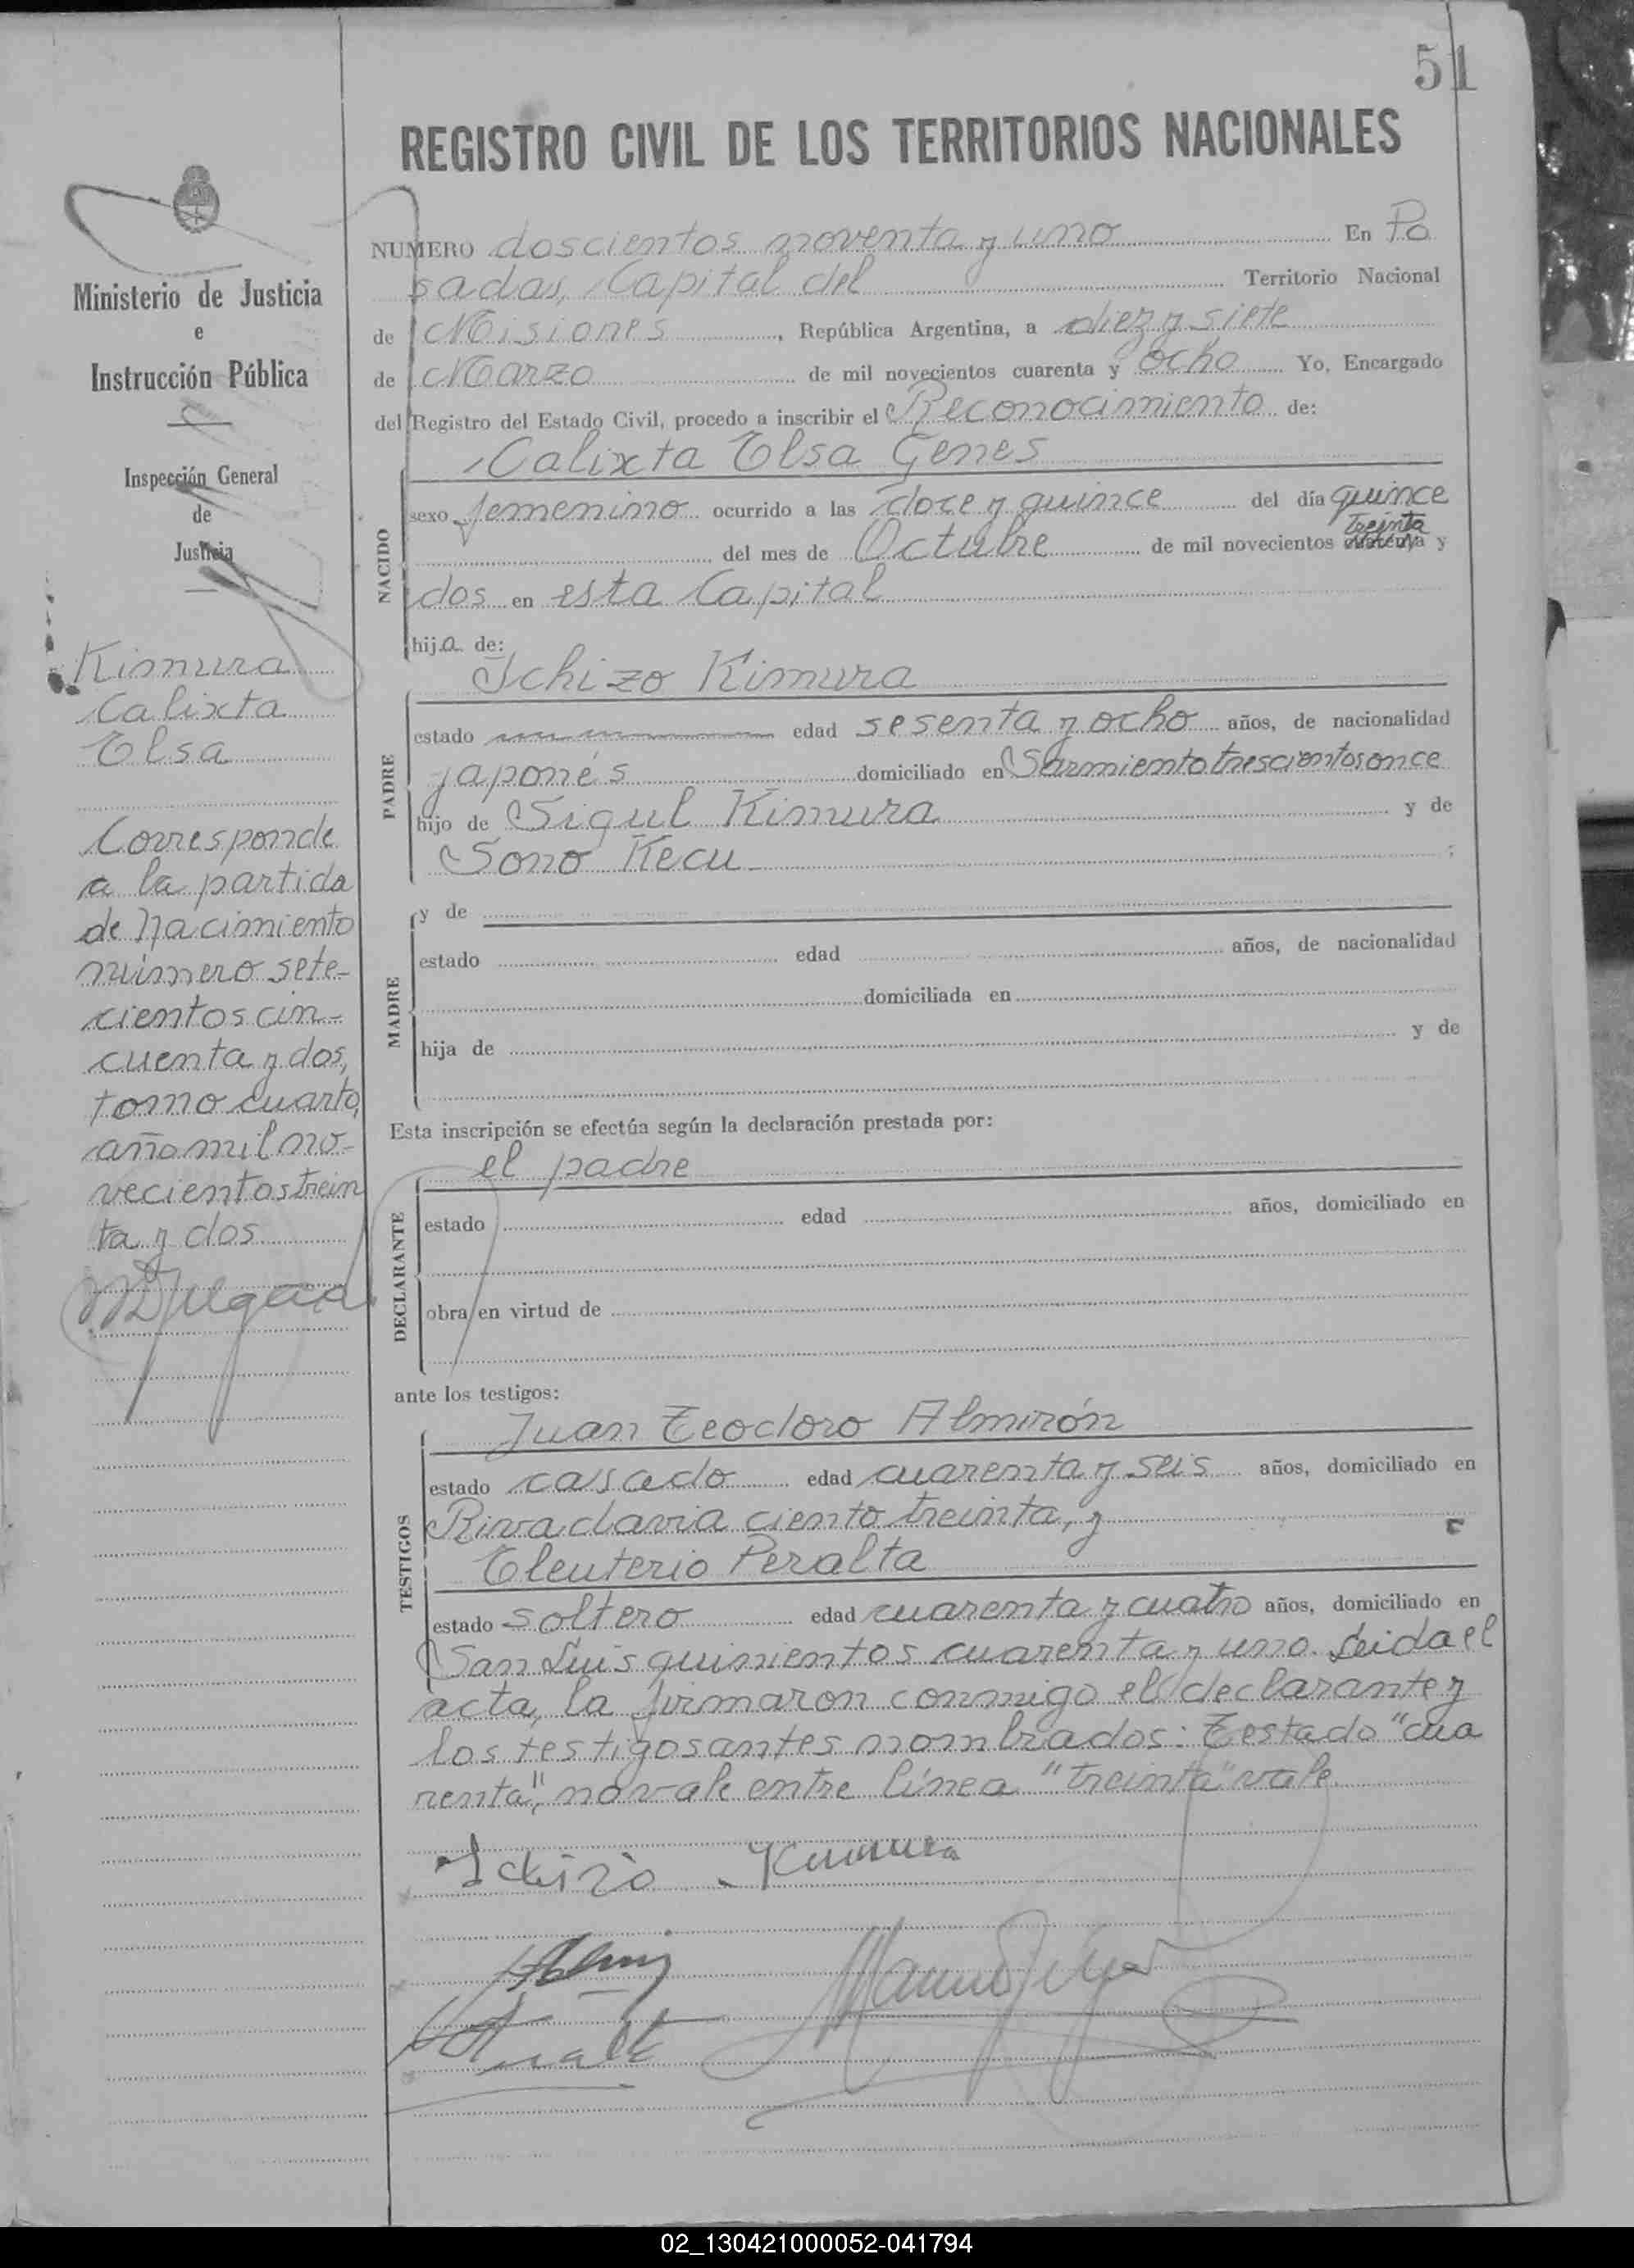 51
REGISTRO CIVIL DE LOS TERRITORIOS NACIONALES
Ministerio de Justicia
e
Instrucción Pública
Inspección General
de
Justicia
Kimura
Calixta
Elsa
Corresponde
a la partida
de Nacimiento
número sete-
cientos cin-
cuenta y dos,
tomo cuarto,
año mil no-
vecientos trein
ta y dos
NUMERO doscientos noventa y uno En Po
sadas, Capital del Territorio Nacional
de Misiones, República Argentina, a diez y siete
de Marzo de mil novecientos cuarenta y ocho Yo, Encargado
del Registro del Estado Civil, procedo a inscribir el Reconocimiento de:
Calixta Elsa Genes
NACIDO
sexo femenino ocurrido a las doce y quince del día quince
treinta
del mes de Octubre de mil novecientos cuarenta y
dos en esta Capital
hija de:
Ichizo Kimura
PADRE
estado edad sesenta y ocho años, de nacionalidad
japonés domiciliado en Sarmiento trescientos once
hijo de Sigul Kimura y de
Sono Kecu ;
MADRE
y de
estado edad años, de nacionalidad
domiciliada en
hija de y de
Esta inscripción se efectúa según la declaración prestada por:
el padre
DECLARANTE
estado edad años, domiciliado en
obra en virtud de
ante los testigos:
Juan Teodoro Almirón
TESTIGOS
estado casado edad cuarenta y seis años, domiciliado en
Rivadavia ciento treinta, y
Eleuterio Peralta
estado soltero edad cuarenta y cuatro años, domiciliado en
San Luis quinientos cuarenta y uno. Leida el
acta, la firmaron conmigo el declarante y
los testigos antes nombrados: Testado "cua
renta", no vale entre línea "treinta" vale
Ichizo Kimura
02_130421000052-041794